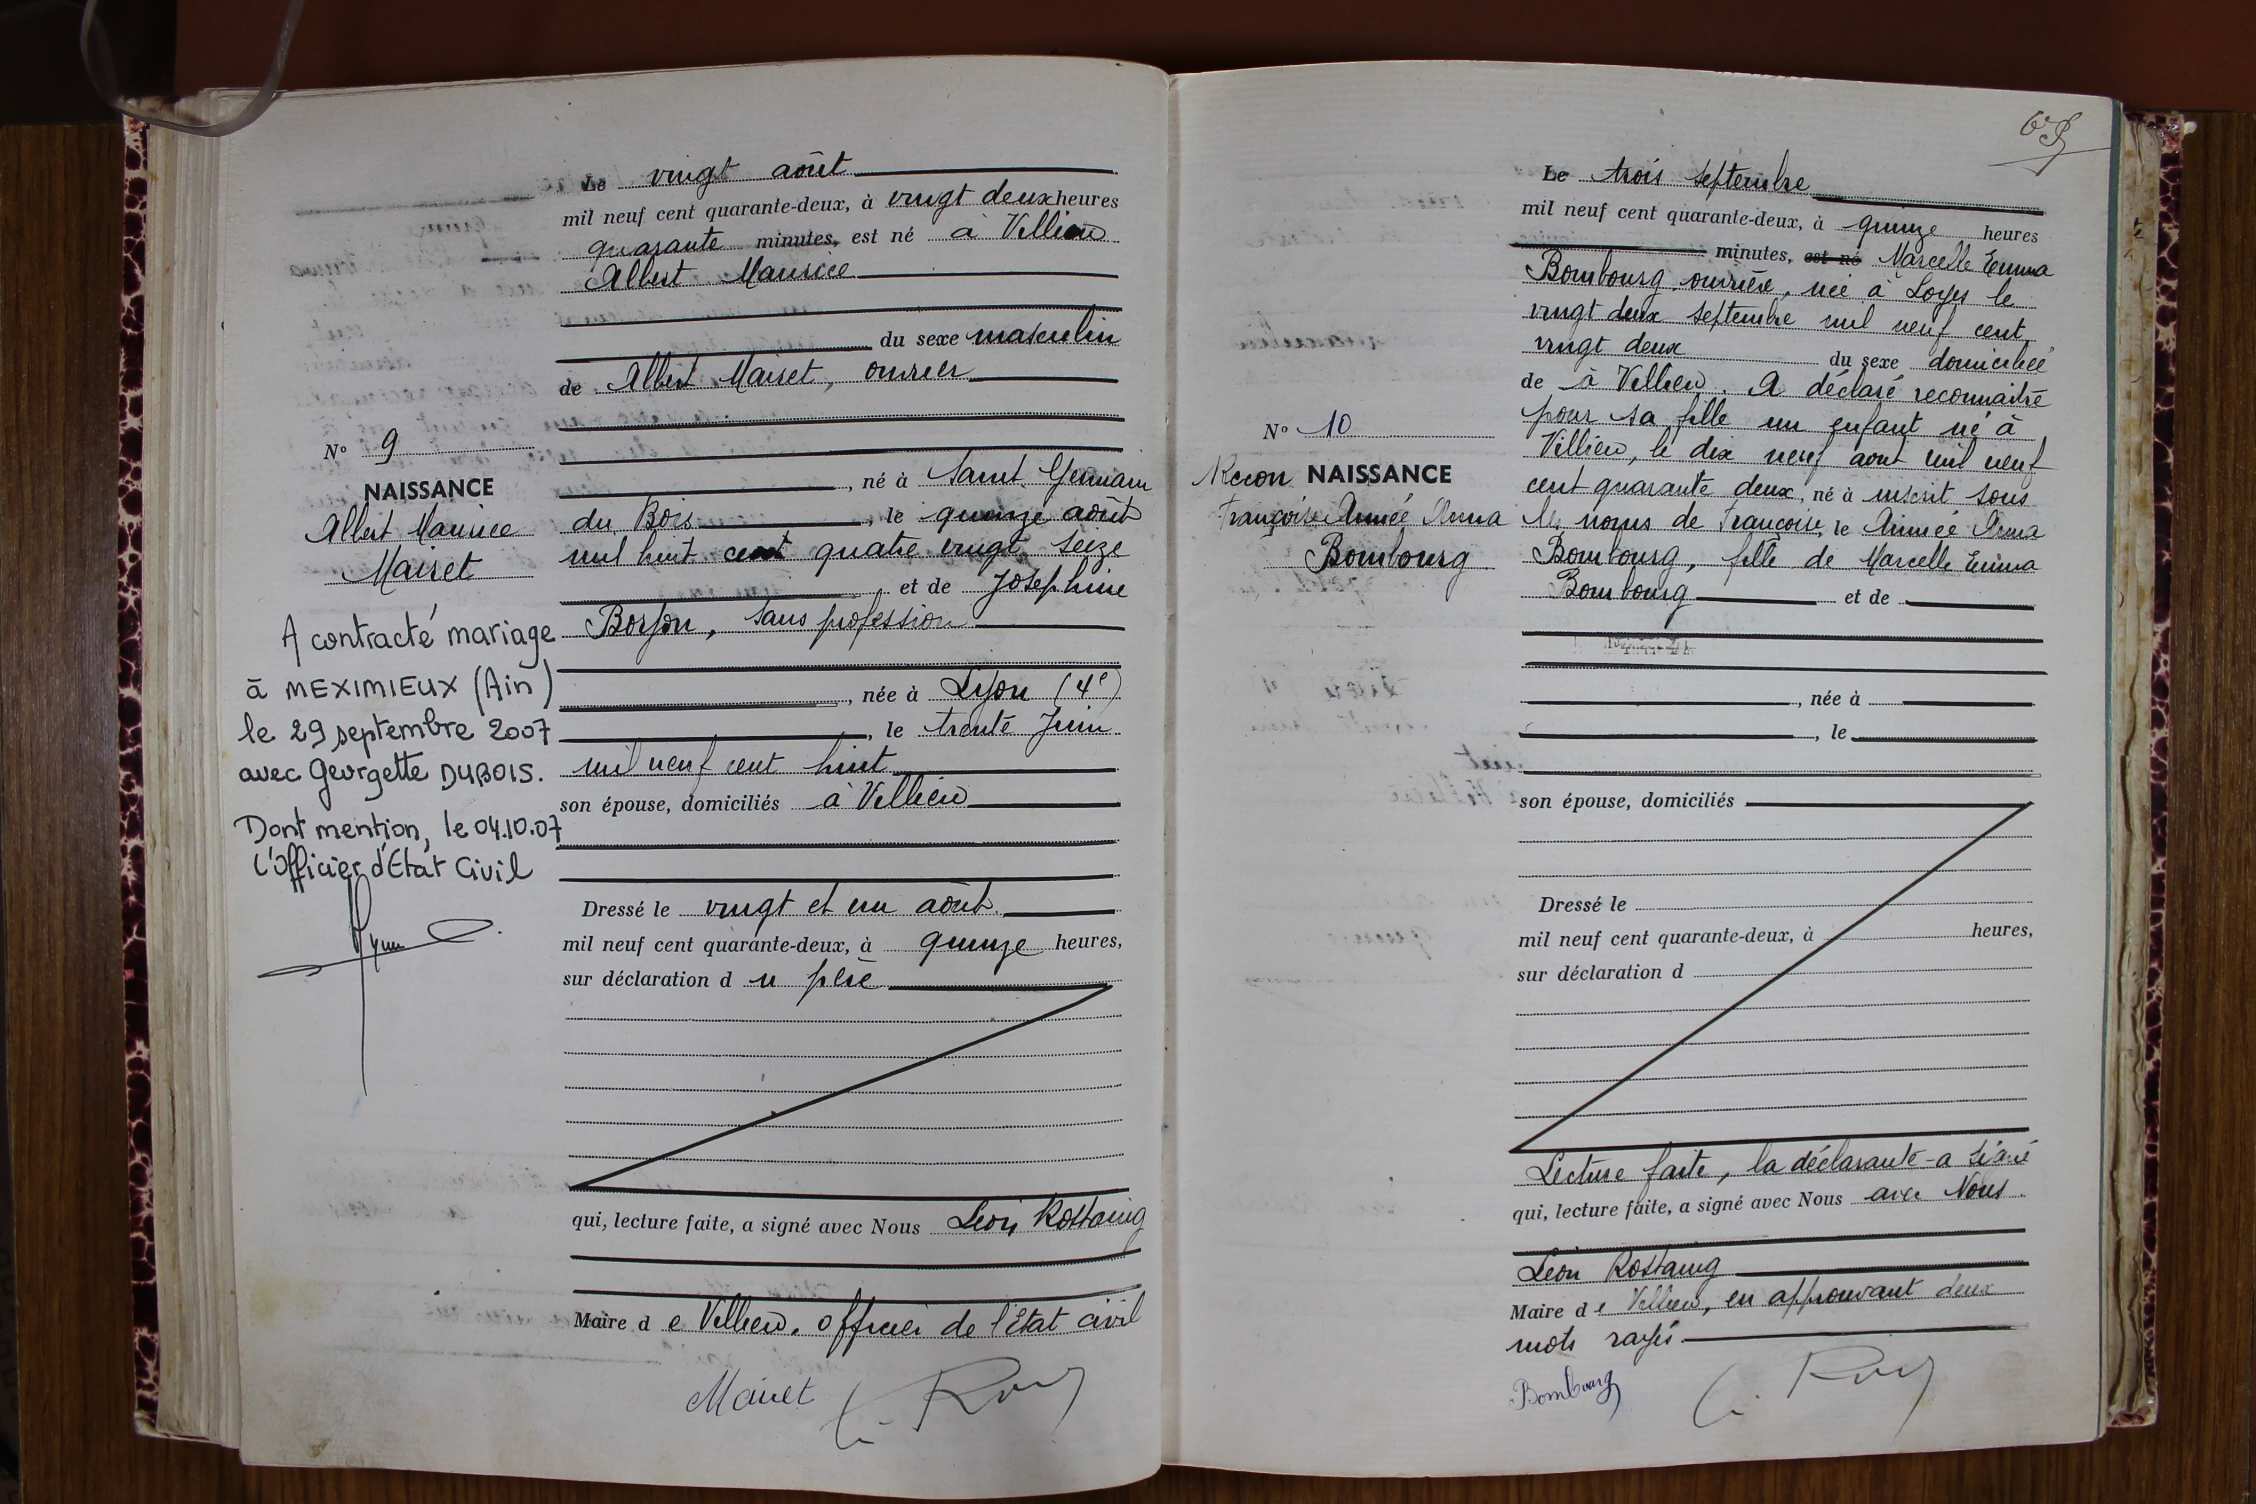 Le vingt août
mil neuf cent quarante-deux, à vingt deux heures
quarante minutes, est né à Villieu
Albert Maurice
du sexe masculin
de Albert Mairet, ouvrier
N° 9
NAISSANCE
Albert Maurice
Mairet
, né à Saint Germain
du Bois, le quinze août
mil huit cent quatre vingt seize
et de Joséphine
Borjon, sans profession
, née à Lyon (4e)
, le trente Juin
mil neuf cent huit
son épouse, domiciliés à Villieu
A contracté mariage
à MEXIMIEUX (Ain)
le 29 septembre 2007
avec Georgette DUBOIS.
Dont mention, le 04.10.07
L'Officier d'Etat Civil
Dressé le vingt et un août
mil neuf cent quarante-deux, à quinze heures,
sur déclaration du père
qui, lecture faite, a signé avec Nous Léon Rostaing
Maire de Villieu, officier de l'Etat civil
Mairet
Le trois septembre
mil neuf cent quarante-deux, à quinze heures
minutes, est né Marcelle Emma
Bombourg, ouvrière, née à Loyes le
vingt deux septembre mil neuf cent
vingt deux du sexe domiciliée
de à Villieu. A déclaré reconnaître
pour sa fille un enfant né à
Villieu, le dix neuf août mil neuf
cent quarante deux, né à inscrit sous
les noms de Françoise, le Aimée Anna
Bombourg, fille de Marcelle Emma
Bombourg et de
N° 10
Recon NAISSANCE
Françoise Aimée Anna
Bombourg
, née à
, le
son épouse, domiciliés
Dressé le
mil neuf cent quarante-deux, à heures,
sur déclaration d
Lecture faite, la déclarante a signé
qui, lecture faite, a signé avec Nous avec Nous
Léon Rostaing
Maire de Villieu, en approuvant deux
mots rayés
Bombourg